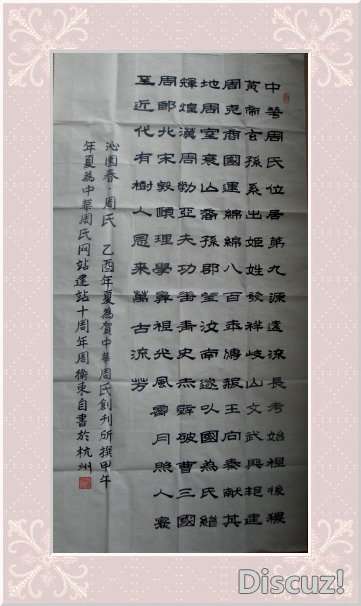 中華周氏位居第九源遠流長考始祖後稷
黃帝玄孫系出姬姓發祥岐山文武興起建
周克商國運綿綿八百年傳赧王向秦獻其
地周室衰山裔孫郡望汝南遂以國為氏繼
輝煌漢周勃亞夫功垂青史赤壁破曹三國
周郎北宋敦頤理學鼻祖光風霽月照人寰
至近代有樹人恩來萬古流芳
沁園春·周氏 乙酉年夏為賀中華周氏創刊所撰甲午
年夏為中華周氏网站建站十周年周衛東自書於杭州
Discuz!